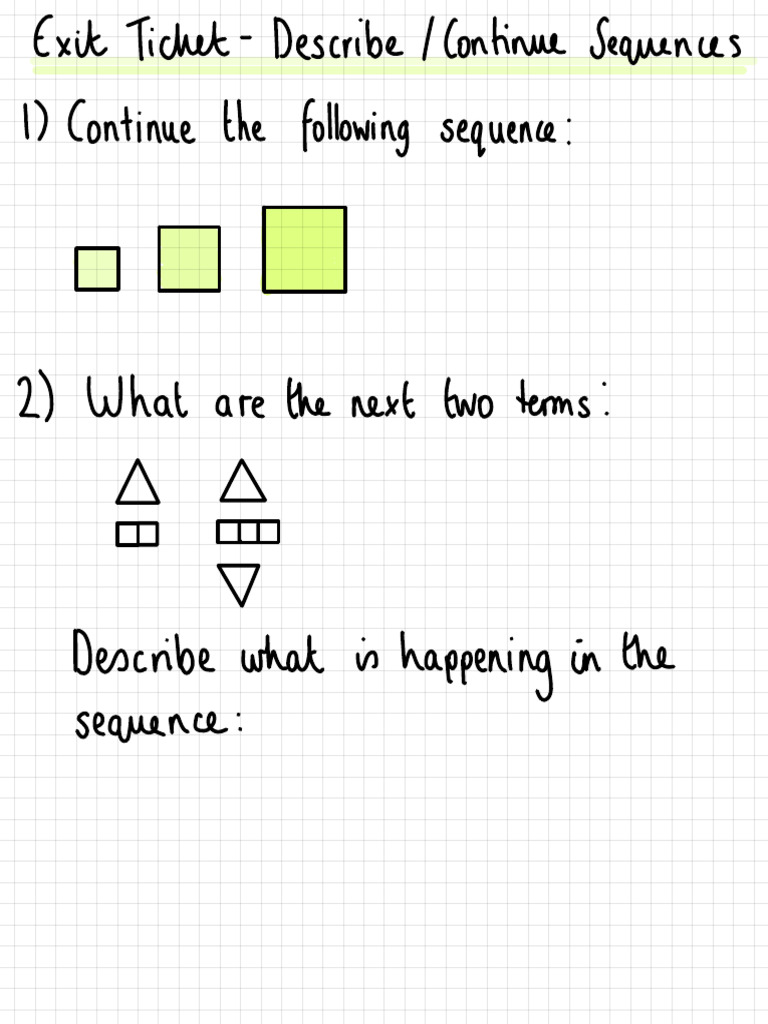 Exit Ticket - Describe / Continue Sequences
1) Continue the following sequence:
2) What are the next two terms:
Describe what is happening in the
sequence: